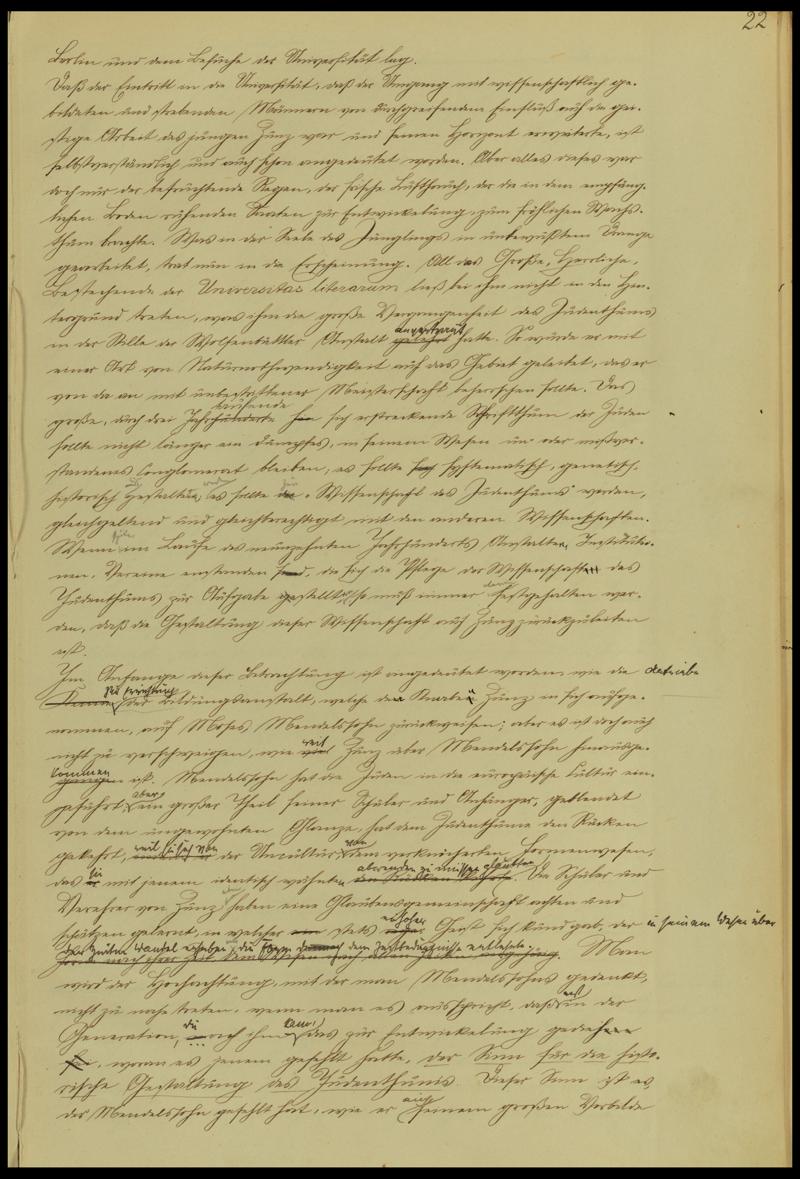 22
Berlin und dem Besuche der Universität lag.
Daß der Eintritt in die Universität, daß der Umgang mit wissenschaftlich ge-
bildeten und strebenden Männern von durchgreifendem Einfluß auf die gei-
stige Arbeit des jungen Zunz war und seinen Horizont erweiterte, ist
selbstverständlich und auch schon angedeutet worden. Aber alles dieses war
doch nur der befruchtende Regen, der frische Lufthauch, der die in dem empfäng-
lichen Boden ruhenden Saaten zur Entwickelung, zum fröhlichen Wachs-
thum brachte. Was in der Seele des Jünglings in unbewußtem Drange
gearbeitet, trat nun in die Erscheinung. All das Große, Herrliche,
Bestechende der Universitas literarum ließ bei ihm nicht in den Hin-
tergrund treten, was ihm die große Vergangenheit des Judenthums
in der Stille der Wolfenbüttler Anstalt anvertraut hatte. So wurde er mit
einer Art von Naturnothwendigkeit auf das Gebiet geleitet, das er
von da an mit unbestrittener Meisterschaft beherrschen sollte. Das
große, durch drei Jahrtausende sich erstreckende Schriftthum der Juden
sollte nicht länger ein dumpfes, in seinem Wesen un- oder mißver-
standenes Conglomerat bleiben, es sollte systematisch, genetisch,
historisch gestaltet, es sollte zur Wissenschaft des Judenthums werden,
gleichgeltend und gleichberechtigt mit den anderen Wissenschaften.
Wenn im Laufe des neunzehnten Jahrhunderts Anstalten, Institutio-
nen, Vereine entstanden sind, die sich die Pflege der Wissenschaft des
Judenthums zur Aufgabe gestellt, so muß immer festgehalten wer-
den, daß die Gestaltung dieser Wissenschaft auf Zunz zurückzuleiten
ist.
Im Anfange dieser Betrachtung ist angedeutet worden, wie die
der Bildungsanstalt, welche den Knaben Zunz in sich aufge-
nommen, auf Moses Mendelssohn zurückweisen; aber es ist doch auch
nicht zu verschweigen, wie weit Zunz über Mendelssohn hinausge-
kommen ist. Mendelssohn hat die Juden in die europäische Cultur ein-
geführt, aber ein großer Theil seiner Schüler und Anhänger, geblendet
von dem ungewohnten Glanze, hat dem Judenthume den Rücken
gekehrt, weil sie sich von der Uncultur, von dem verknöcherten Formenwesen,
das sie mit jenem identisch wähnten abwenden zu müssen glaubten. Die Schüler und
Verehrer von Zunz haben eine Glaubensgemeinschaft achten und
schätzen gelernt, in welcher stets hoher Geist sich kundgab, der in seinem Wesen über
der Zeiten Wandel erhaben, die Form dem Zeitbedürfnisse entlehnte. Man
wird der Hochachtung, mit der man Mendelssohns gedenkt,
nicht zu nahe treten, wenn man es ausspricht, daß erst in der
Generation, die nach ihm kam, das zur Entwickelung gedieh
woran es jenem gefehlt hatte, der Sinn für die histo-
rische Gestaltung des Judenthums. Dieser Sinn ist es,
der Mendelssohn gefehlt hat, wie er auch seinem großen Vorbilde